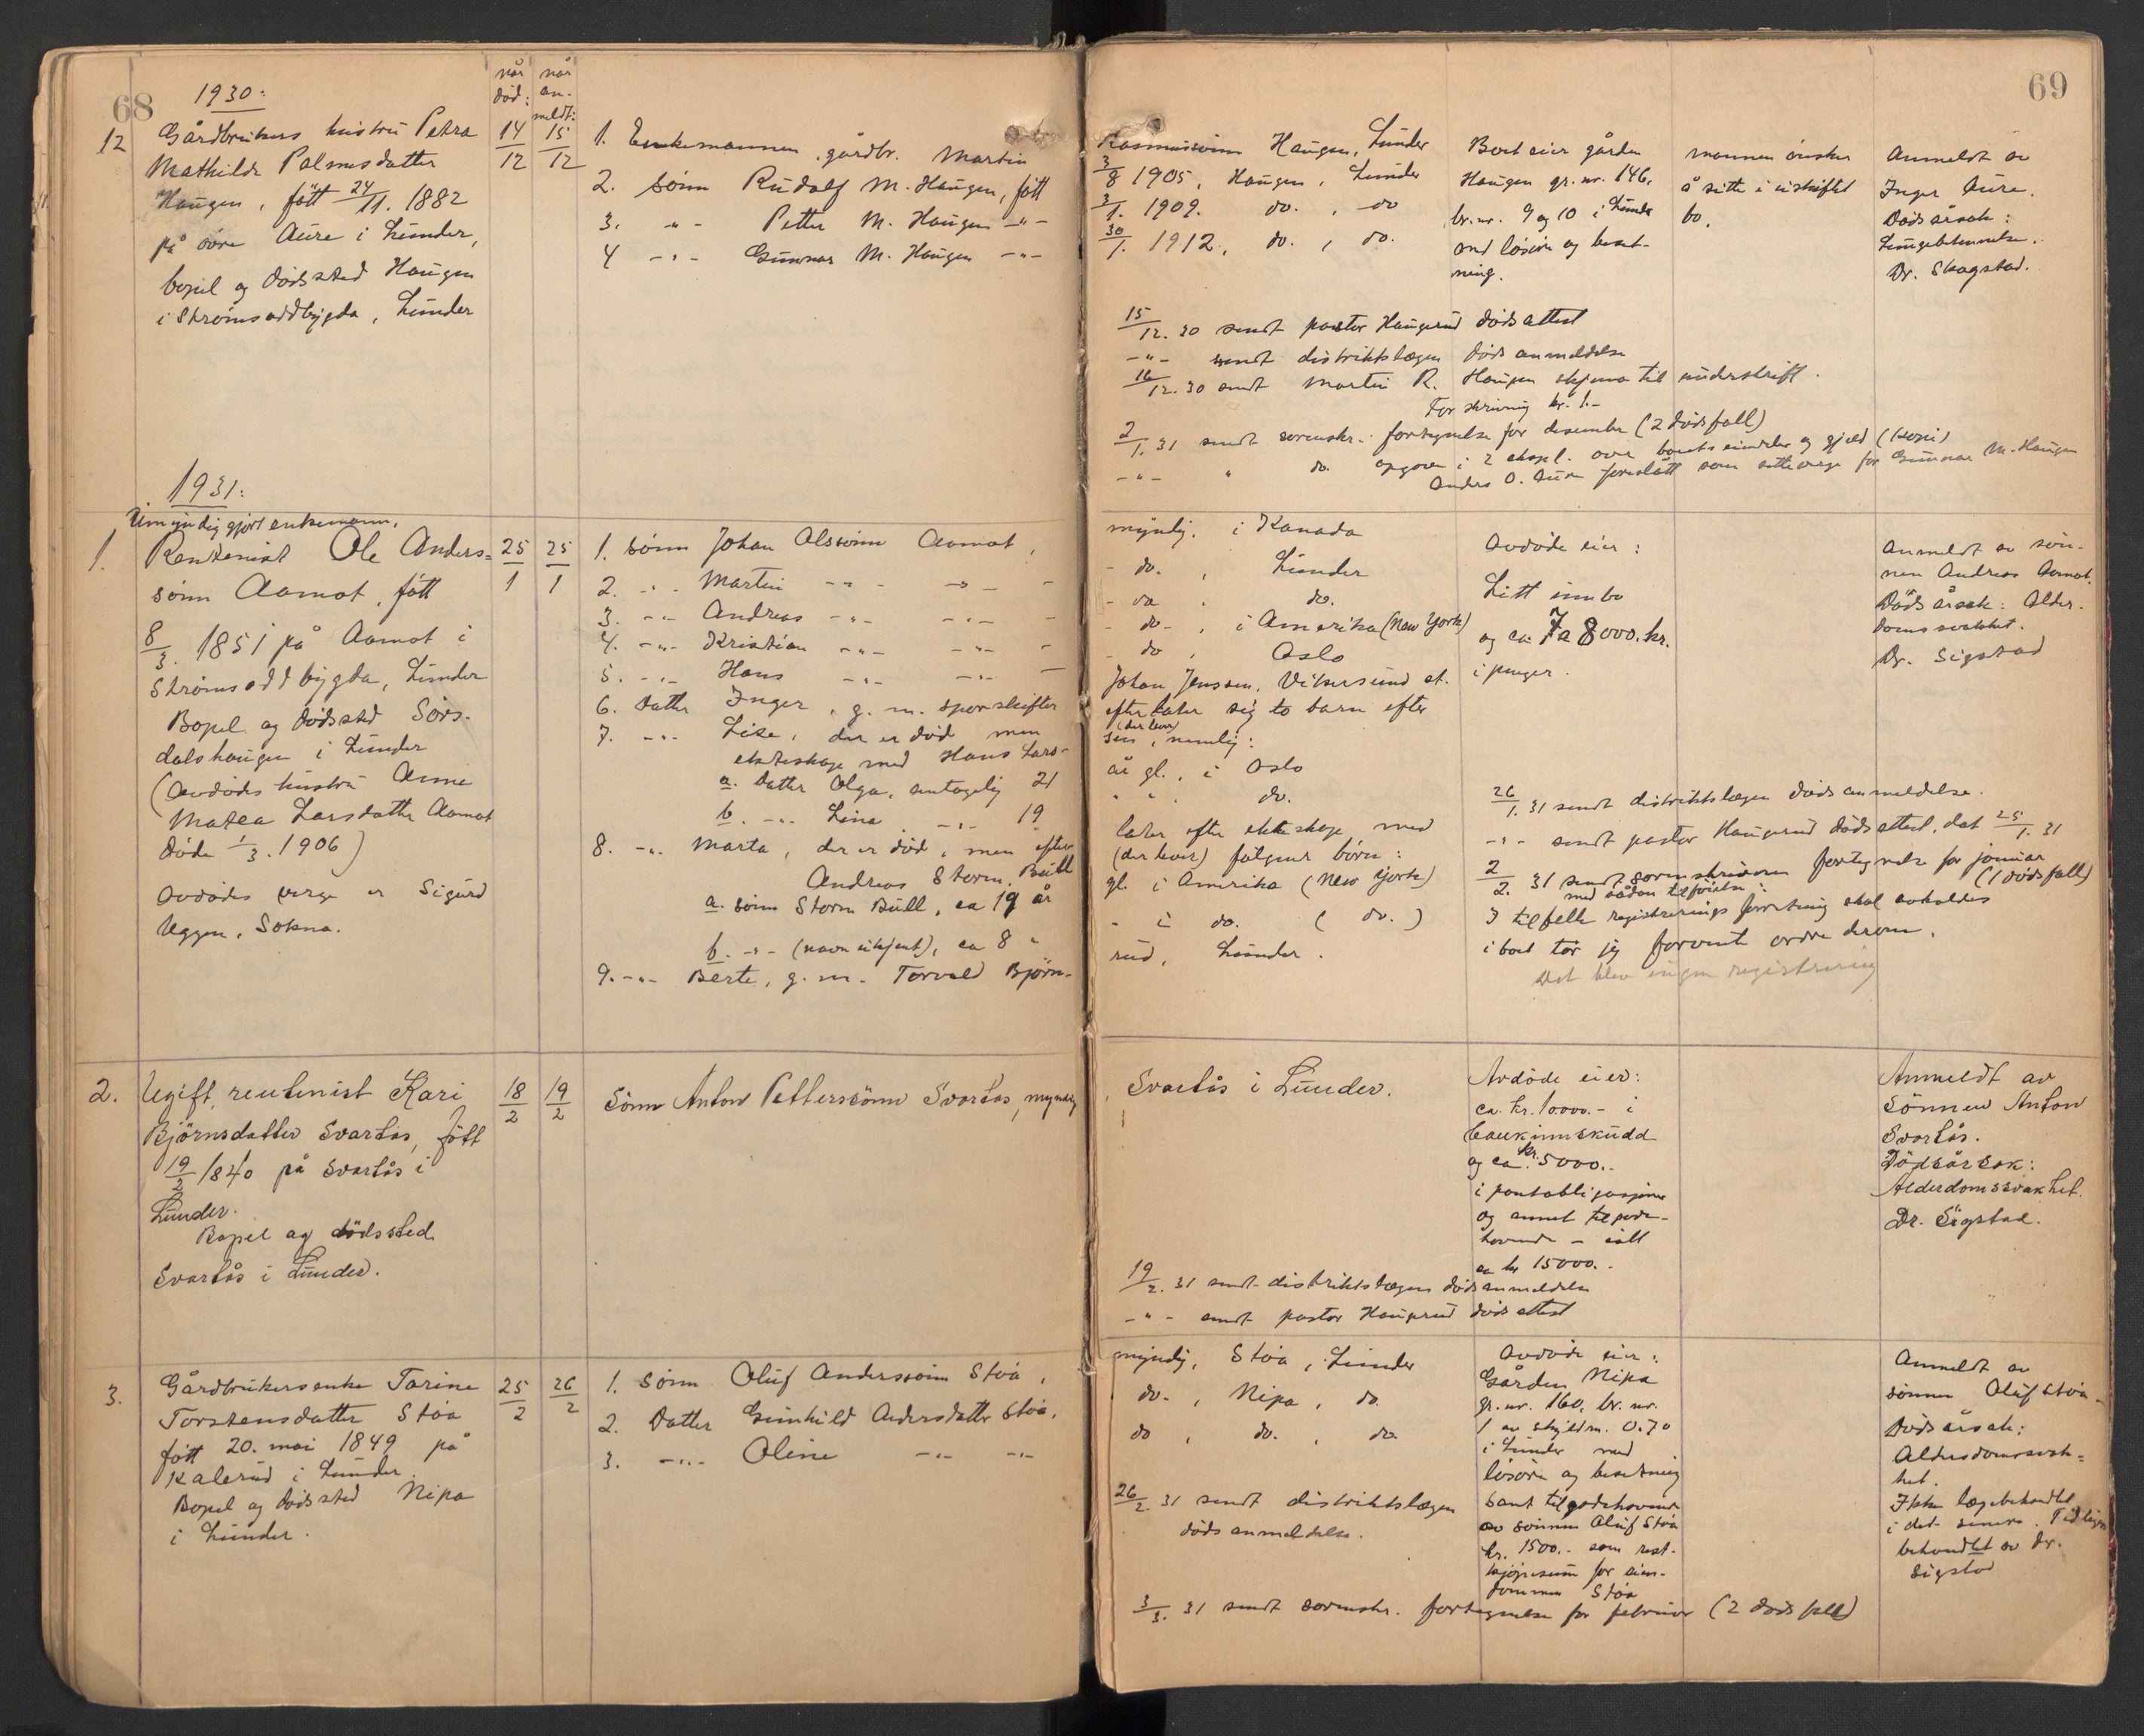 68
1930:
når død:
når an-meldt:
12
Gårdbrukers hustru Petra
Mathilde Palmesdatter
Haugen, født 24/11. 1882
på övre Aure i Lunder,
bopel og dödssted Haugen
i Strømsoddbygda, Lunder
14/12
15/12
1. Enkemannen, gårdbr. Martin
2. sönn Rudolf M. Haugen, født
3. -"- Petter M. Haugen -"-
4 -"- Gunnar M. Haugen -"-
1931:
Umyndig gjort enkemann,
1.
Rentenist Ole Anders-
sönn Aamot, født
8/3. 1851 på Aamot i
Strømsoddbygda, Lunder
Bopel og dödssted Sörs-
dalshaugen i Lunder
(Avdödes hustru Anne
Matea Larsdatter Aamot
döde 1/3. 1906)
Avdödes verge er Sigurd
Uggen, Sokna.
25/1
25/1
1. Sönn Johan Olssönn Aamot,
2. -"- Martin -"- -"- -
3. -"- Andreas -"- -"- -
4. -"- Kristian -"- -"- -
5. -"- Hans -"- -"- -
6. Datter Inger, g. m. sporskifter
7. -"- Lise, der er död men
ekteskap med Hans Lars-
a. datter Olga, antagelig 21
b. -"- Lina -"- 19
8. -"- Marta, der er död, men efter
Andreas Storm Bull
a. sönn Storm Bull, ca 19 år
b. -"- (navn ukjent), ca 8 "
9. -"- Berte, g. m. Torvald Björn-
2.
Ugift, rentenist Kari
Björnsdatter Svartås, født
19/2 1840 på Svartås i
Lunder.
Bopel og dödssted
Svartås i Lunder.
18/2
19/2
Sönn Anton Petterssönn Svartås, myndig
3.
Gårdbrukersenke Torine
Torstensdatter Stöa
født 20. mai 1849 på
Kalerud i Lunder.
Bopel og dödssted Nipa
i Lunder.
25/2
26/2
1. Sönn Oluf Anderssönn Stöa,
2. Datter Gunhild Andersdatter Stöa,
3. -"- Oline -"- -"-
69
Rasmussönn Haugen, Lunder
3/8 1905, Haugen, Lunder
3/1. 1909. do. , do
30/1. 1912, do. , do.
Boet eier gården
Haugen gr. nr. 146,
br. nr. 9 og 10 i Lunder
med lösöre og beset-
ning.
mannen önsker
å sitte i uskiftet
bo.
Anmeldt av
Inger Aure.
Dödsårsak:
Lungebetennelse.
Dr. Skagstad.
15/12. 30 sendt pastor Haugerud dödsattest
-"- sendt distriktslægen dödsanmeldelse
16/12. 30 sendt Martin R. Haugen skjema til underskrift.
For skrivning kr. 1.-
2/1. 31 sendt sorenskr. fortegnelse for desember (2 dödsfall)
-"- " do. opgave i 2 ekspl. over boets eiendeler og gjeld (kopi)
Anders O. Aure foreslått som setteverge for Gunnar M. Haugen
myndig, i Kanada
- do. , Lunder
- do , do.
- do- , i Amerika (New York)
- do , Oslo
Johan Jenssen, Vikersund st.
efterlater sig to barn efter
sen (der lever), nemlig:
år gl., i Oslo
" " , do.
later efter ekteskap med
(der lever) følgende börn:
gl. i Amerika (New York)
- i do. ( do. )
rud, Lunder.
Avdöde eier:
Litt innbo
og ca. 7 a 8000. kr.
i penger.
Anmeldt av sön-
nen Andreas Aamot.
Dödsårsak: Alder-
domssvakhet.
Dr. Sigstad
26/1. 31 sendt distriktslægen dödsanmeldelse.
-"- sendt pastor Haugerud dödsattest, dat 25/1. 31
2/2. 31 sendt sorenskriveren fortegnelse for januar
(1 dödsfall)
med sådan tilföielse:
I tilfelle registreringsforretning skal avholdes
i boet tör jeg forvente ordre derom.
Det blev ingen registrering
Svartås i Lunder.
Avdöde eier:
ca. kr. 10000.- i
bankinnskudd
og ca kr. 5000.-
i pantobligasjoner
og annet tilgode-
havende - ialt
ca kr 15000.-
Anmeldt av
Sönnen Anton
Svartås.
Dödsårsak:
Alderdomssvakhet.
Dr. Sigstad.
19/2. 31 sendt distriktslægen dödsanmeldelse
-"- sendt pastor Haugerud dödsattest
myndig, Stöa, Lunder
do. , Nipa, do.
do , do. , do.
Avdöde eier:
Gården Nipa
gr. nr. 160, br. nr.
1 av skyldm. 0.70
i Lunder med
lösöre og besetning
samt tilgodehavende
av sönnen Oluf Stöa
kr. 1500.- som rest-
kjöpesum for eien-
dommen Stöa
Anmeldt av
sönnen Oluf Stöa
Dödsårsak:
Alderdomssvak-
het.
Ikke lægebehandlet
i det senere. Tidligere
behandlet av dr.
Sigstad
26/2. 31 sendt distriktslægen
dödsanmeldelse.
3/3. 31 sendt sorenskr. fortegnelse for februar (2 dödsfall)